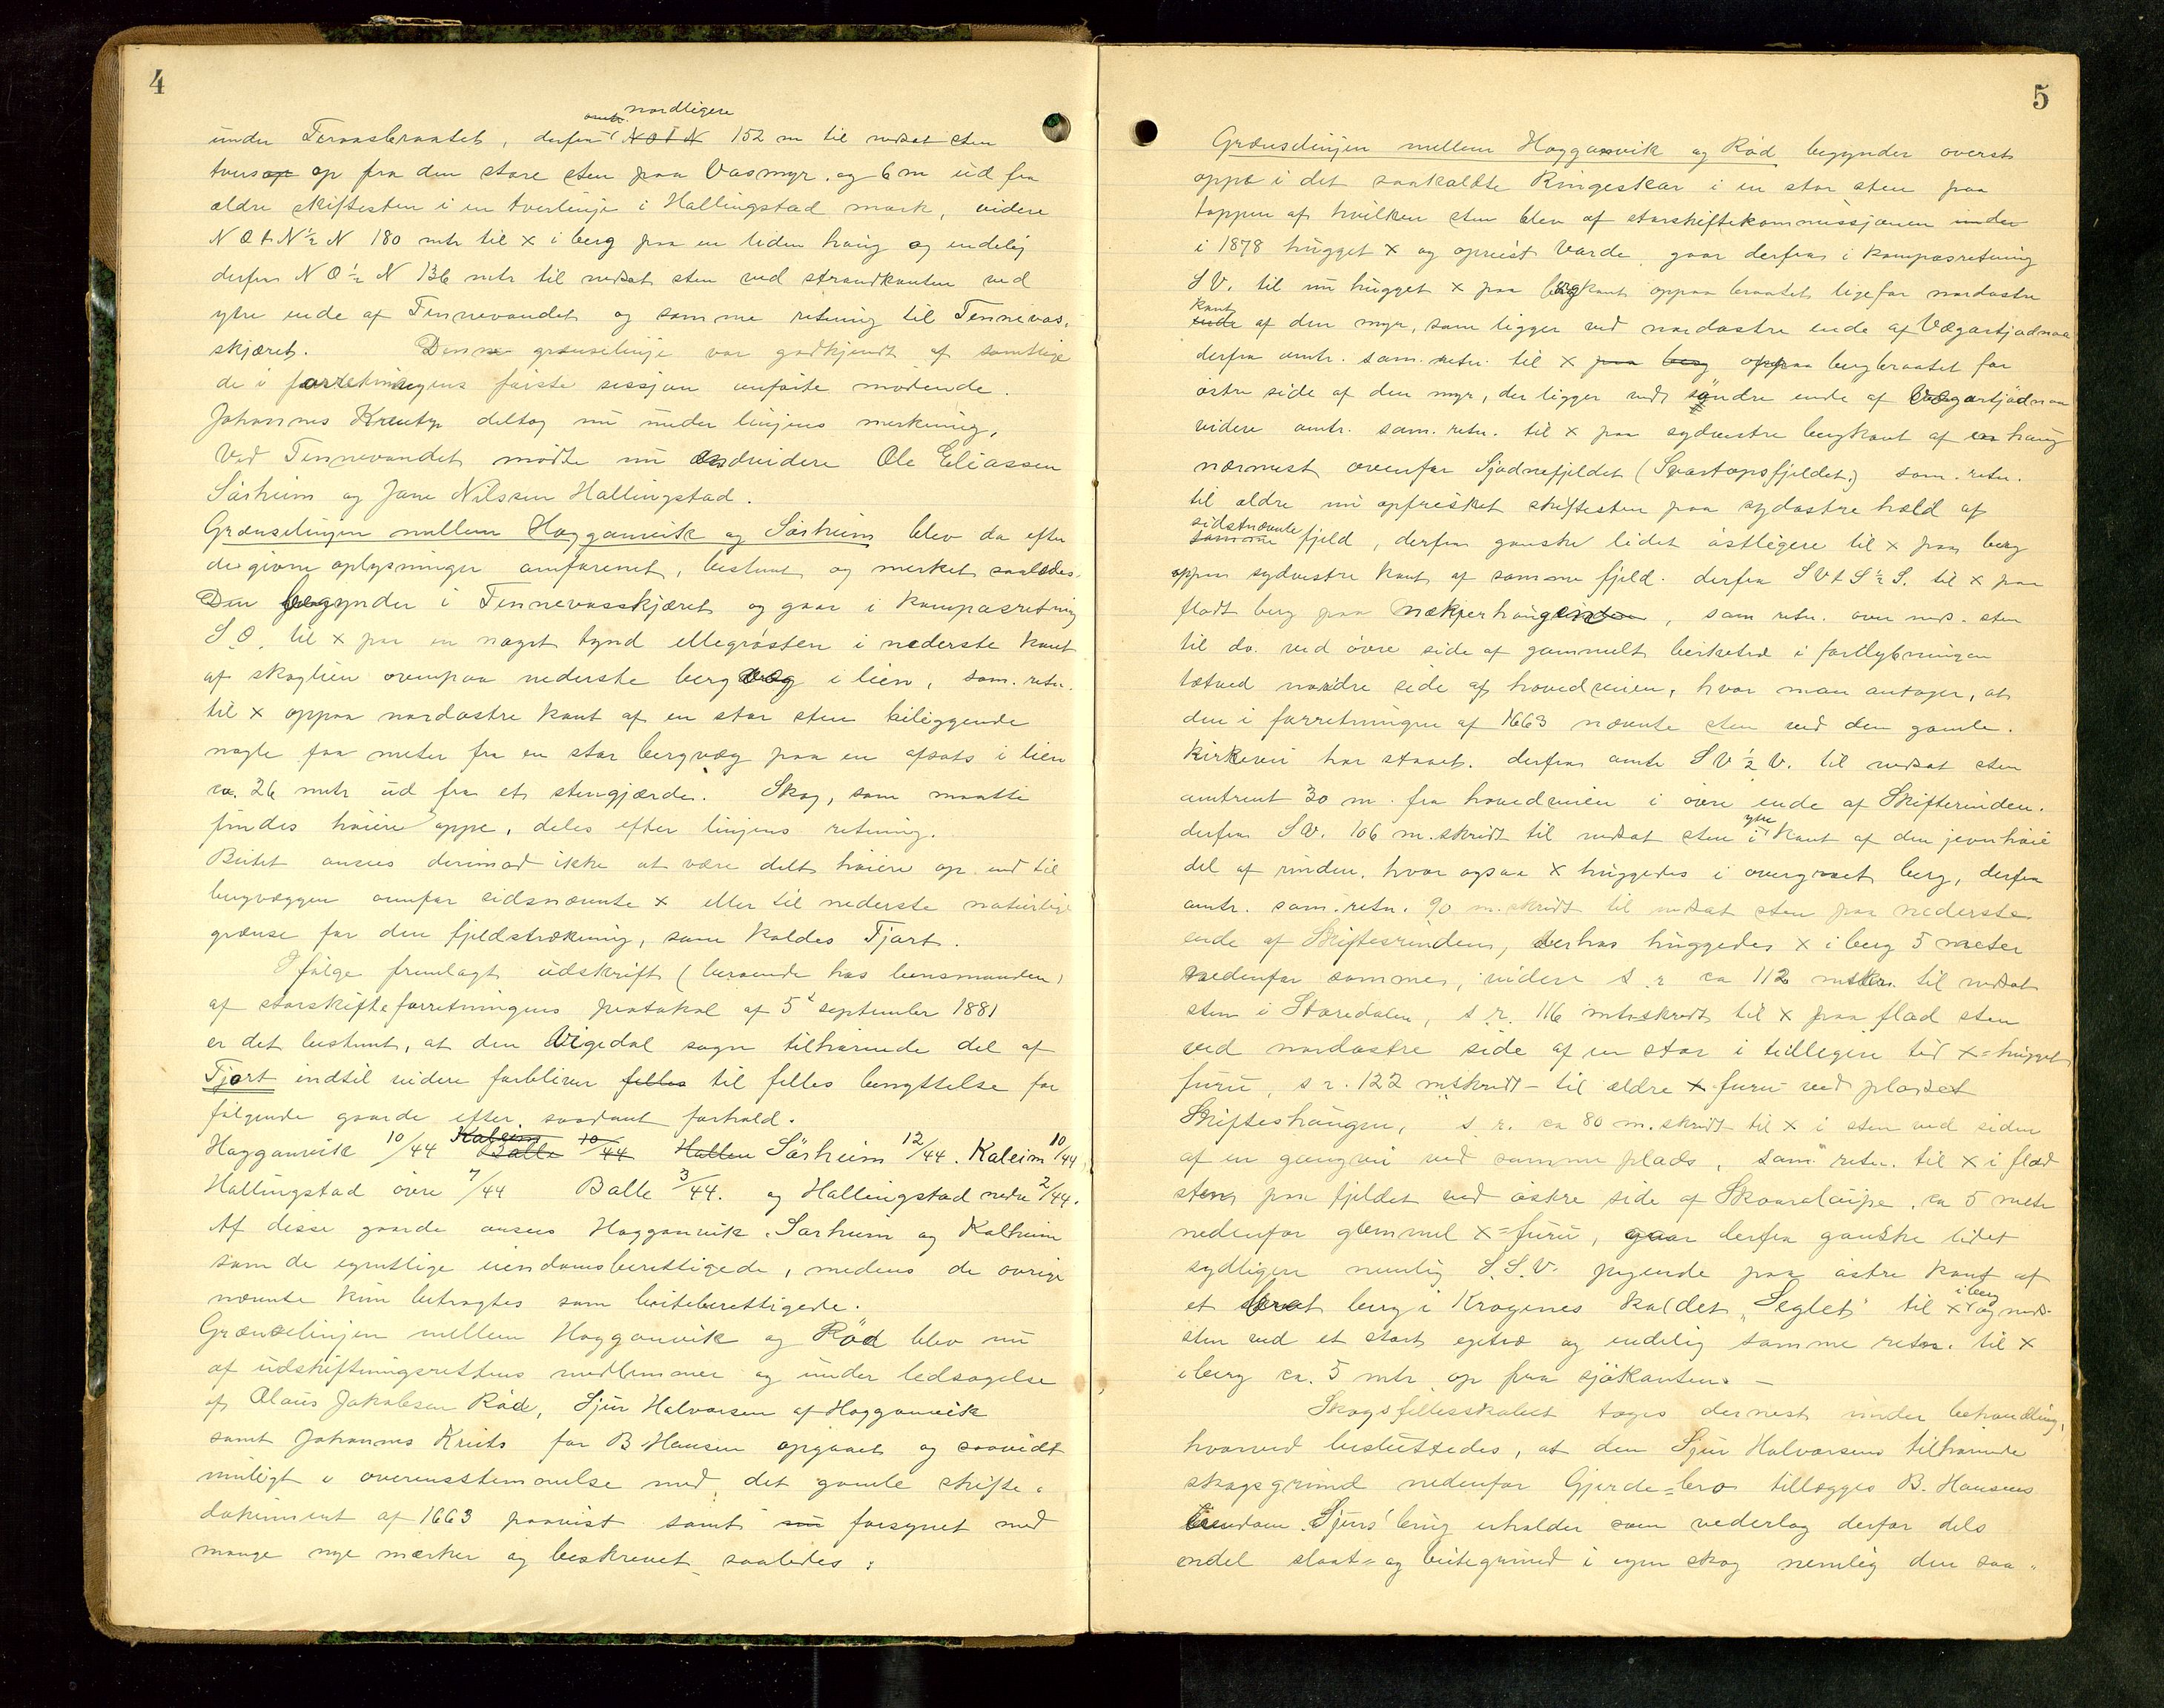 4
omtr. nordligere
under Foraasbraatet, derfra N O t N 152 m til nedsat sten
tversop op fra den store sten paa Vasmyr. og 6 m ud fra
ældre skiftesten i en tverlinje i Hallingstad mark, videre
N O t N ½ N 180 mtr til x i berg paa en liden haug og endelig
derfra N O ½ N 136 mtr til nedsat sten ved strandkanten ved
ytre ende af Tennevandet og samme retning til Tennevas-
skjæret. Denne grænselinje var godkjendt af samtlige
de i forretningens første sessjon anførte mødende.
Johannes Kreutz deltog nu under linjens merkning.
Ved Tennevandet mødte nu endvidere Ole Eliassen
Sørheim og Jane Nilssen Hallingstad.
Grænselinjen mellem Hogganvik og Sørheim blev da efter
de givne oplysninger omfarenet, bestemt og merket saaledes.
Den begynder i Tennevasskjæret og gaar i kompasretning
S O. til x paa en noget tynd ellegrosten i nederste kant
af skoglien ovenpaa nederste berg væg i lien, sam. retn.
til x oppaa nordøstre kant af en stor sten beliggende
nogle faa meter fra en stor bergvæg paa en afsats i lien
ca. 26 mtr ud fra et stengjærde. Skog, som maatte
findes høiere oppe, deles efter linjens retning.
Beitet ansees derimod ikke at være delt høiere op end til
bergvæggen ovenfor sidsnævnte x eller til nederste naturlige
grænse for den fjeldstrækning, som kaldes Tjort.
I følge fremlagt udskrift (beroende hos lensmanden)
af storskifteforretningens protokol af 5t september 1881
er det bestemt, at den Vigedal sogn tilhørende del af
Tjort indtil videre forbliver felles til felles benyttelse for
følgende gaarde efter saadant forhold.
Hogganvik 10/44 Kaleim Balle 10/44 Hallen Sørheim 12/44. Kaleim 10/44,
Hallingstad øvre 7/44 Balle 3/44. og Hallingstad nedre 2/44.
Af disse gaarde ansees Hogganvik, Sørheim og Kalheim
som de egentlige eiendomsberettigede, medens de øvrige
nævnte kun betragtes som beiteberettigede.
Grænselinjen mellem Hogganvik og Rød blev nu
af udskiftningsrettens medlemmer og under ledsagelse
af Olaus Jakobsen Rød, Sjur Halvorsen af Hogganvik
samt Johannes Kreits for B Hansen opgaaet og saavidt
muligt i overensstemmelse med det gamle skifte-
dokument af 1663 paavist samt nu forsynet med
mange nye mærker og beskrevet saaledes:
5
Grænselinjen mellem Hogganvik og Rød begynder øverst
oppe i det saakaldte Ringeskar i en stor sten paa
toppen af hvilken sten blev af storskiftekommissjonen under
i 1878 hugget x og opreist Varde, gaar derfra i kompasretning
S V. til nu hugget x paa bergkant oppaa braatet ligefor nordøstre
kant
ende af den myr, som ligger ved nordøstre ende af Vægartjødnaa
derfra omtr. sam. retn. til x paa berg oppaa bergbraatet for
østre side af den myr, der ligger ved søndre ende af Vægartjødnaa
videre omtr. sam. retn. til x paa sydvestre bergkant af en haug
nærmest ovenfor Sjødnefjeldet (Svartopsfjeldet) sam. retn.
til ældre nu opfrisket skiftesten paa sydøstre hæld af
sidstnævnte
samme fjeld, derfra ganske lidet østligere til x paa berg
oppaa sydvestre kant af samme fjeld. derfra S V t S ½ S. til x paa
fladt berg paa Nækperhaugen, sam retn. over neds. sten
til do. ved øvre side af gammelt birketræ i
tætved nordre side af hovedveien, hvor man antager, at
den i forretningen af 1663 nævnte sten ved den gamle
kirkevei har staaet. derfra omtr S V ½ V. til nedsat sten
omtrent 30 m. fra hovedveien i øvre ende af Skifterinden.
ytre
derfra S V. 106 m. skridt til nedsat sten i kant af den jevnhøie
del af rinden, hvor ogsaa x huggedes i overgroet berg, derfra
omtr. sam. retn. 90 m. skridt til nedsat sten paa nederste
ende af Skiftesrinden, derhos huggedes x i berg 5 meter
nedenfor sammes, videre s r ca 112 mskr. til nedsat
sten i Storedalen, s r. 116 mtrskridt til x paa flad sten
ved nordøstre side af en stor i tidligere tid x-hugget
furu, s r. 122 mskridt til ældre x-furu ved pladset
Skifteshaugen, s r. ca 80 m. skridt til x i sten ved siden
af en gangvei ved samme plads, sam. retn. til x i flad
sten paa fjeldet ved østre side af Skoraløipe, ca 5 meter
nedenfor gammel x-furu, gaar derfra ganske lidet
sydligere nemlig S.S.V. pegende paa østre kant af
i berg
et berg i Krogenes kaldet "Seglet" til x og neds.
sten ved et stort egetræ og endelig samme retn. til x
i berg ca. 5 mtr op fra sjøkanten. —
Skogsfellesskabet toges dernest under behandling,
hvorved besluttedes, at den Sjur Halvorsens tilhørende
skogsgrund nedenfor Gjerde-bro tillægges B. Hansens
eiendom. Sjurs' brug erholder som vederlag derfor dels
endel slaat- og beitegrund i egen skog nemlig den saa-